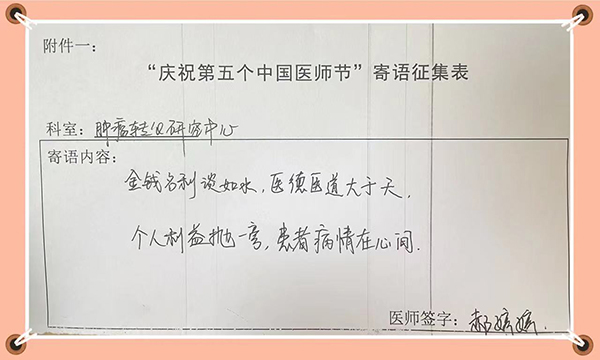 附件一：
“庆祝第五个中国医师节”寄语征集表
科室：肿瘤转化研究中心
寄语内容：
金钱名利淡如水，医德医道大于天，
个人利益抛一旁，患者病情在心间.
医师签字：郝